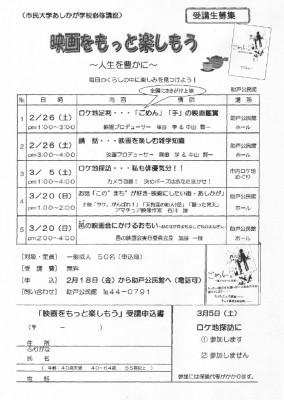 (市民大学あしかが学校必修講座)
受講生募集
映画をもっと楽しもう
～人生を豊かに～
毎日のくらしの中に楽しみを見つけよう!
全国にさきがけ上映
No 日時 内容 講師 場所
1 2/26(土) pm1:00~3:00
ロケ地足利・・・「ごめん」「手」の映画鑑賞
映画プロデューサー
助戸公民館 ホール
2 2/26(土) pm3:00~4:00
講話・・・映画を楽しむ雑学知識
映画プロデューサー
助戸公民館 ホール
3 3/5(土) pm1:00~
ロケ地探訪・・・私も俳優気分!!
市内ロケ地めぐり
4 3/20(日) pm1:00~2:00
アマチュア映像作家 石川
助戸公民館 ホール
5 3/20(日) pm2:00~4:00
邑の映画会にかけるおもい
邑の映画会実行委員会
助戸公民館 ホール
(対象・定員) 一般成人 50名(申込順)
(受講費) 無料
(申込) 2月18日(金)から助戸公民館へ(電話可)
(問い合わせ) 助戸公民館 ℡44-0791
「映画をもっと楽しもう」受講申込書
(〒 -)
住所
ふりがな
氏名
電話
3月5日(土)
ロケ地探訪に
① 参加します
② 参加しません
参加には保険代等がかかります。